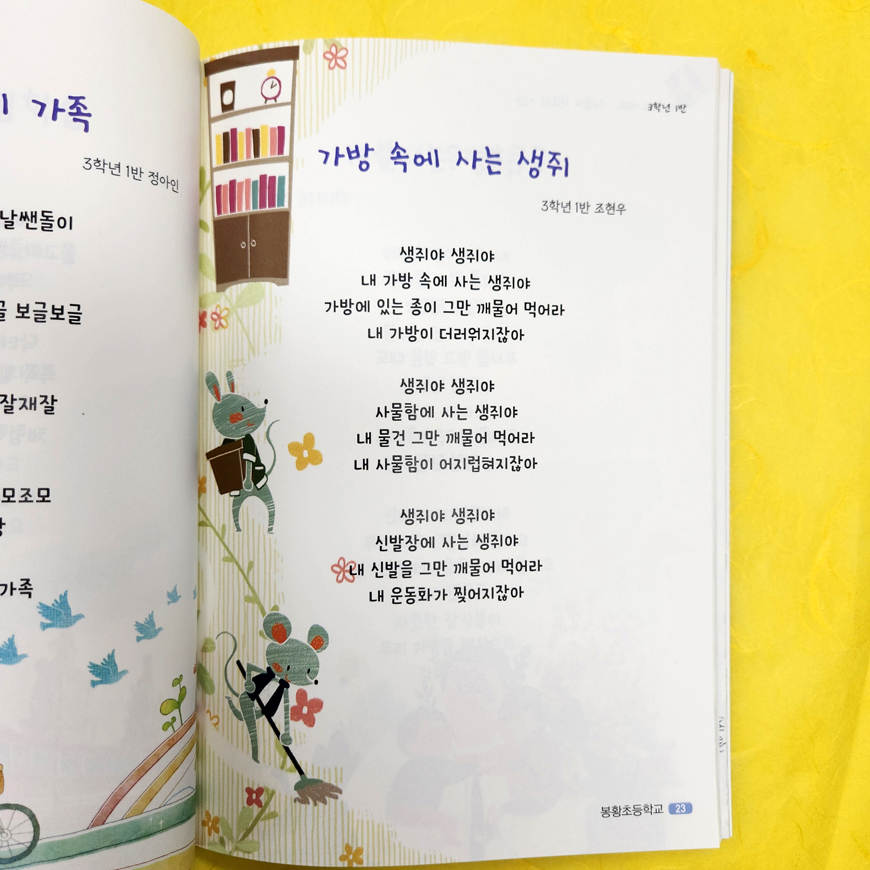 가족
3학년 1반 정아인
날쌘돌이
보글보글
잘재잘
모조모
가족
3학년 1반
가방 속에 사는 생쥐
3학년 1반 조현우
생쥐야 생쥐야
내 가방 속에 사는 생쥐야
가방에 있는 종이 그만 깨물어 먹어라
내 가방이 더러워지잖아
생쥐야 생쥐야
사물함에 사는 생쥐야
내 물건 그만 깨물어 먹어라
내 사물함이 어지럽혀지잖아
생쥐야 생쥐야
신발장에 사는 생쥐야
내 신발을 그만 깨물어 먹어라
내 운동화가 찢어지잖아
봉황초등학교 23